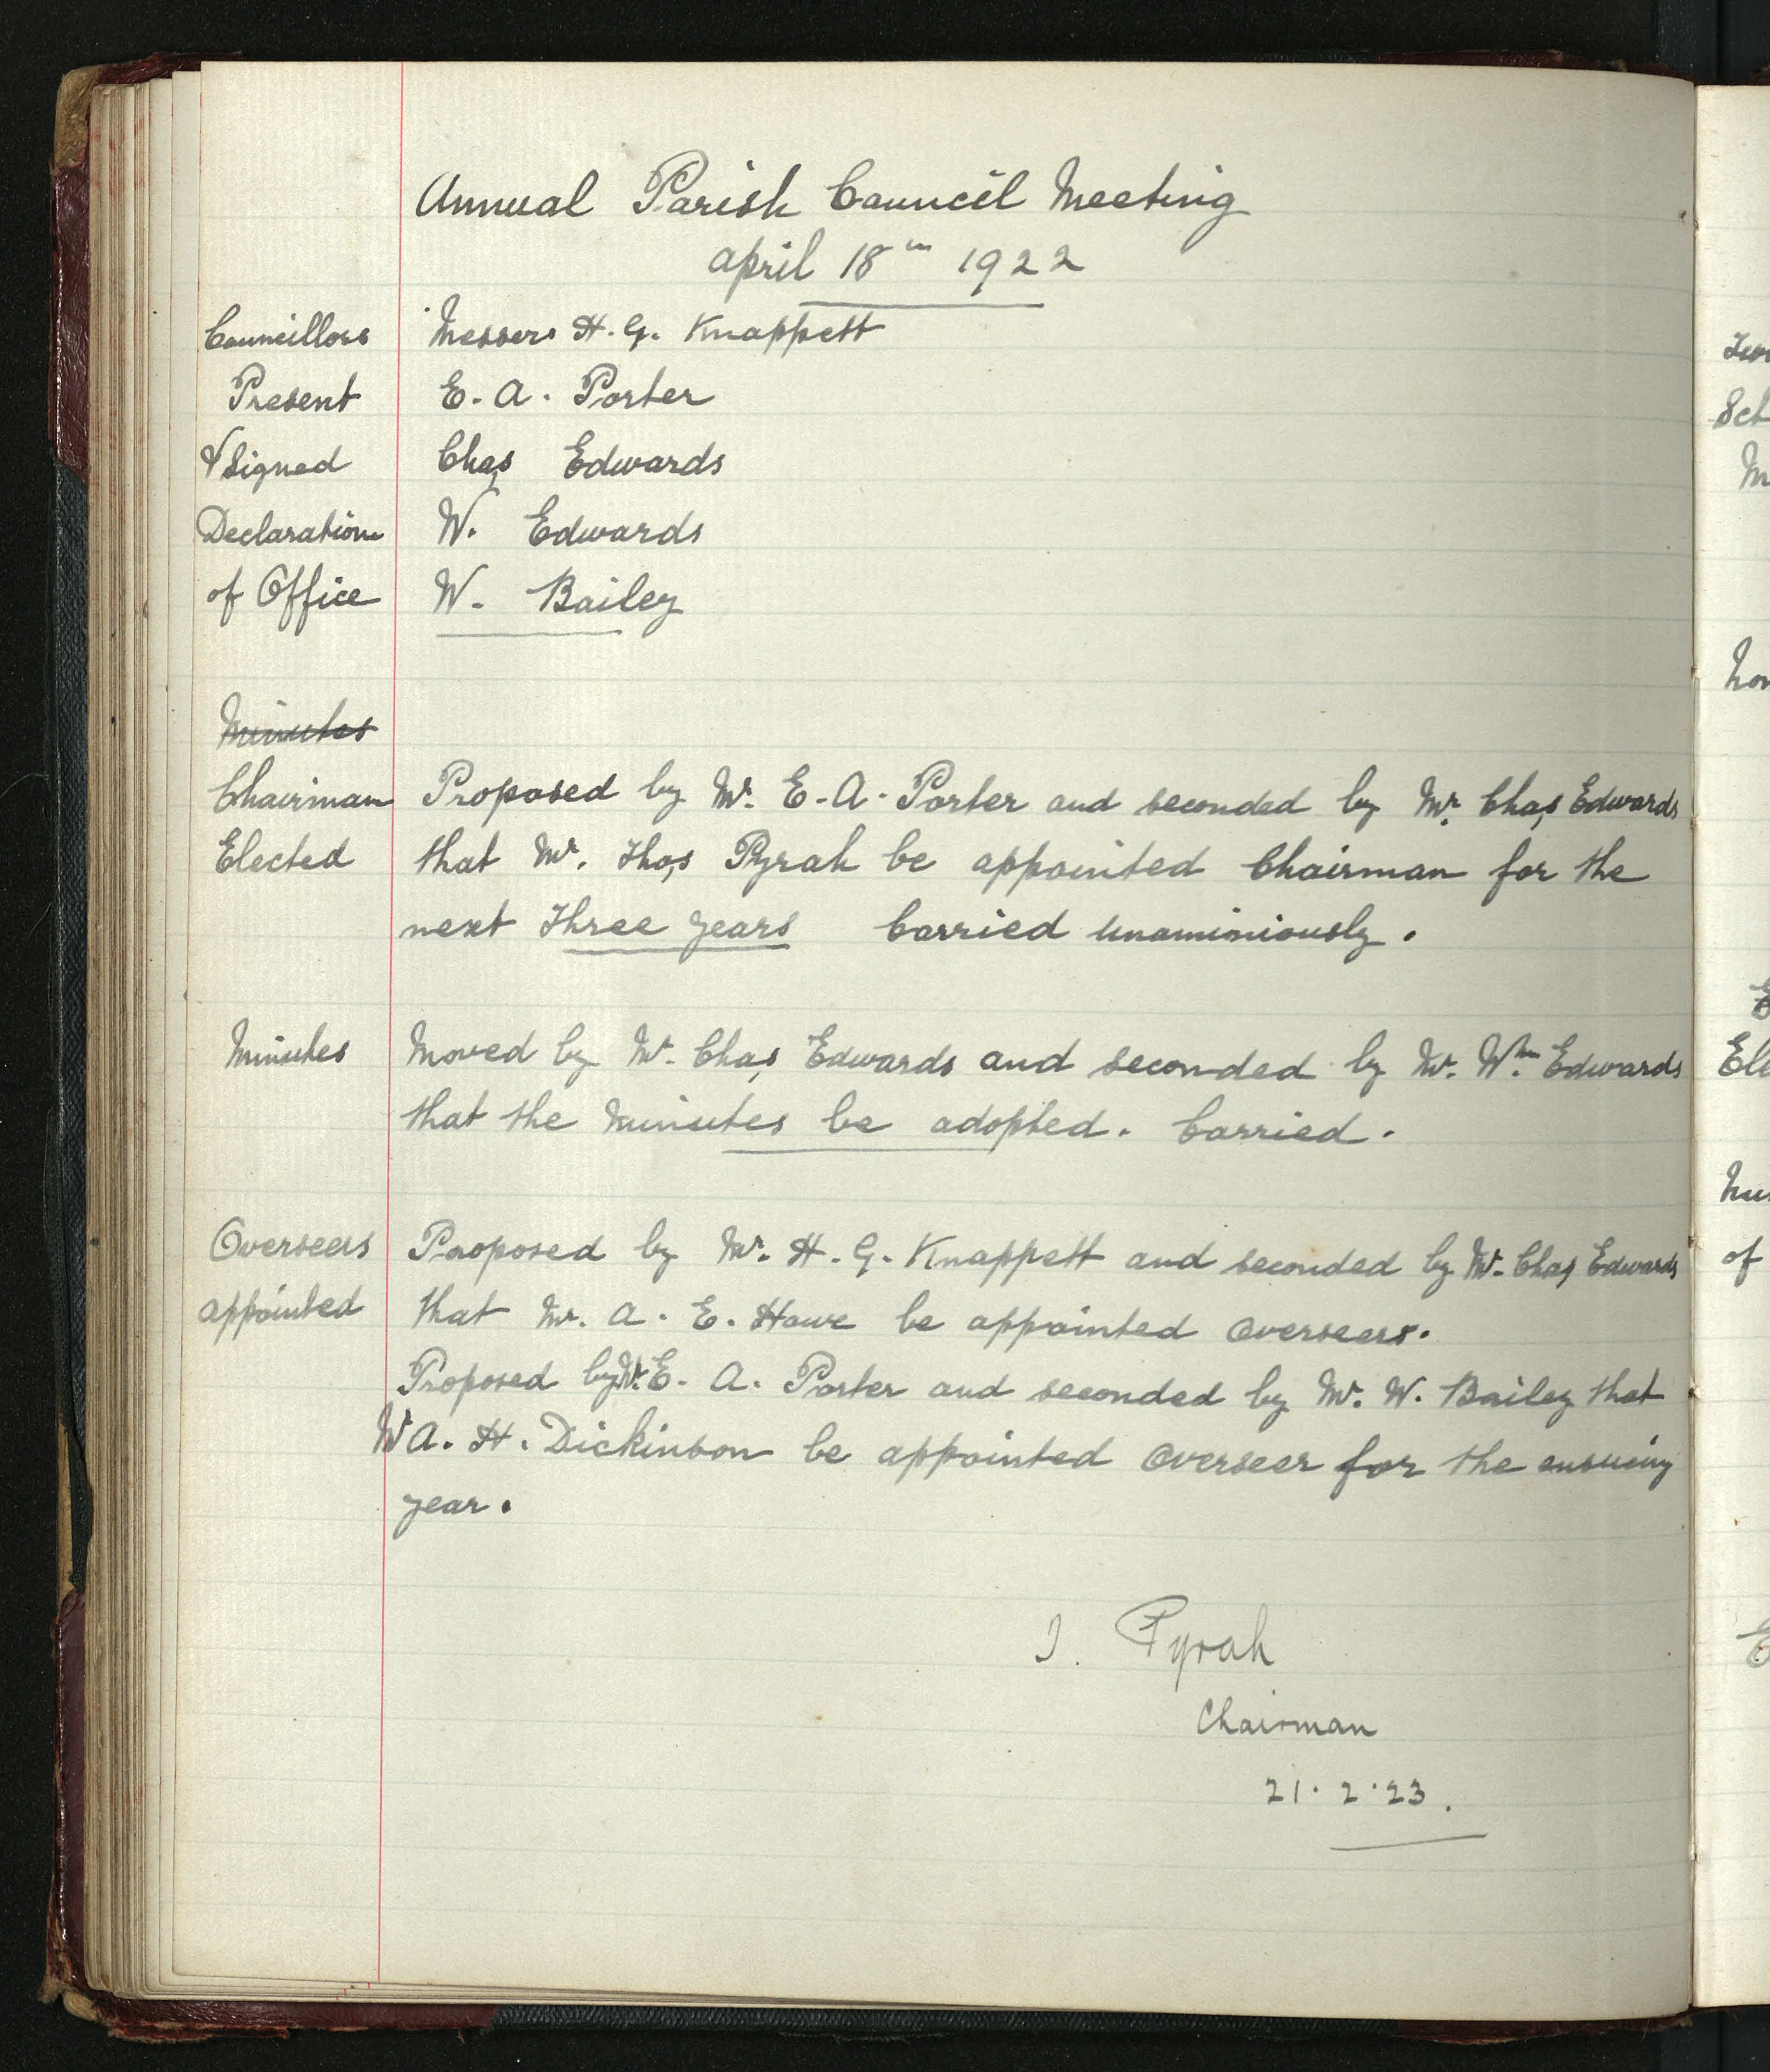 Annual Parish Council Meeting
April 18th 1922
Councillors Messers H. G. Knappett
Present E. A. Porter
& Signed Chas Edwards
Declaration W. Edwards
of Office W. Bailey
Minutes
Chairman Proposed by Mr. E. A. Porter and seconded by Mr. Chas Edwards
Elected that Mr. Thos Pyrah be appointed Chairman for the
next Three years Carried Unaminiously.
Minutes Moved by Mr. Chas Edwards and seconded by Mr. Wm. Edwards
that the Minutes be adopted. Carried.
Overseers Proposed by Mr. H. G. Knappett and seconded by Mr. Chas Edwards
appointed that Mr. A. E. Howe be appointed Overseers.
Proposed by Mr. E. A. Porter and seconded by Mr. W. Bailey that
Mr A. H. Dickinson be appointed Overseer for the ensuing
year.
T. Pyrah
Chairman
21.2.23.
of